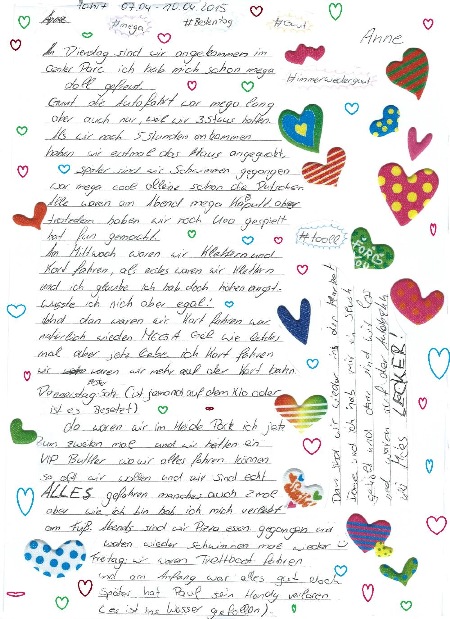 Anne
07.04 - 10.04.2015
#mega
#Bestentag
#Cool
Anne
#immerwiedergut
Am Dienstag sind wir angekommen im
center Parc ich hab mich schon mega
doll gefreut.
Gut die Autofahrt war mega lang
aber auch nur, weil wir 3 staus hatten.
Als wir nach 5 stunden ankammen
haben wir erstmal das Haus angeguckt,
später sind wir Schwimmen gegangen
war mega cool alleine schon die Rutschen
Alle waren am Abend mega kaputt aber
trotzdem haben wir noch Uno gespielt
hat fun gemacht.
#toll
Am Mittwoch waren wir Klettern und
Kart fahren, als erstes waren wir klettern
und ich glaube ich hab doch höhenangst
wusste ich nich aber egal!
dann waren wir Kart fahren war
natürlich wieder MEGA Geil wie letztes
mal aber jetz liebe ich Kart fahren
wir waren wir mehr auf der Kart bahn
Donnerstag (ist jemand auf dem Klo oder
ist es Besetzt)
da waren wir im Heide Park ich jetz
zum zweiten mal und wir hatten ein
VIP Buttler wo wir alles fahren können
so oft wir wollen und wir sind echt
ALLES gefahren manches auch 2mal
aber wie ich bin hab ich mich verletzt
am Fuß. Abends sind wir Pizza essen gegangen und
waren wieder schwimmen mal wieder
Freitag wir waren Trettboot fahren
und am Anfang war alles gut doch
später hat Paul sein Handy verloren
(es ist ins Wasser gefallen).
Dann sind wir wieder in das
und ich hab mir ein
geholt und dann sind wir los
und waren auf der Autobahn
bei Mces LECKER!
FOR